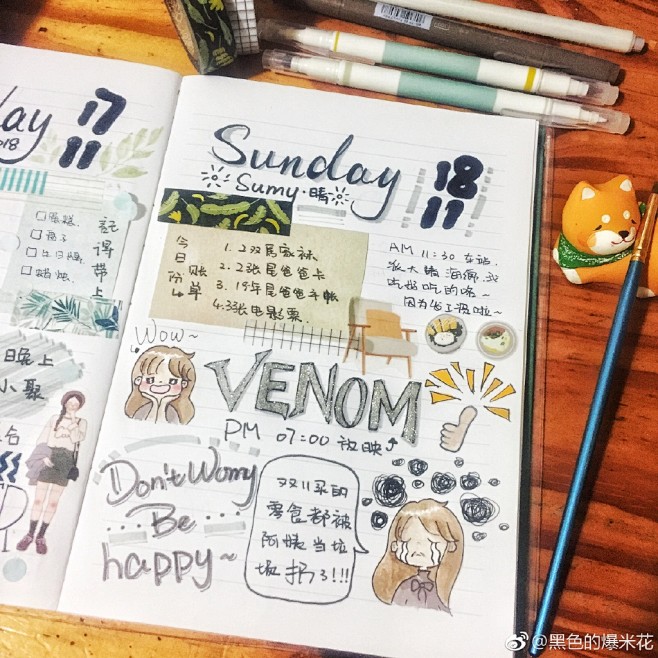 day 17
2018 11
□蛋糕
記得帶上
□生日燭
晚上
小聚
Sunday 18
Sumy·晴 11
今日份账单
1.2双居家袜
2.2张尾爸爸卡
3.19年尾爸爸手帐
4.3张电影票.
AM 11:30 在站
吃好吃的咯~
因为发工资啦~
Wow~
VENOM
PM 07:00 放映
Don't Worry
Be
happy~
双11买的
零食都被
阿姨当垃
圾扔了!!!
@黑色的爆米花